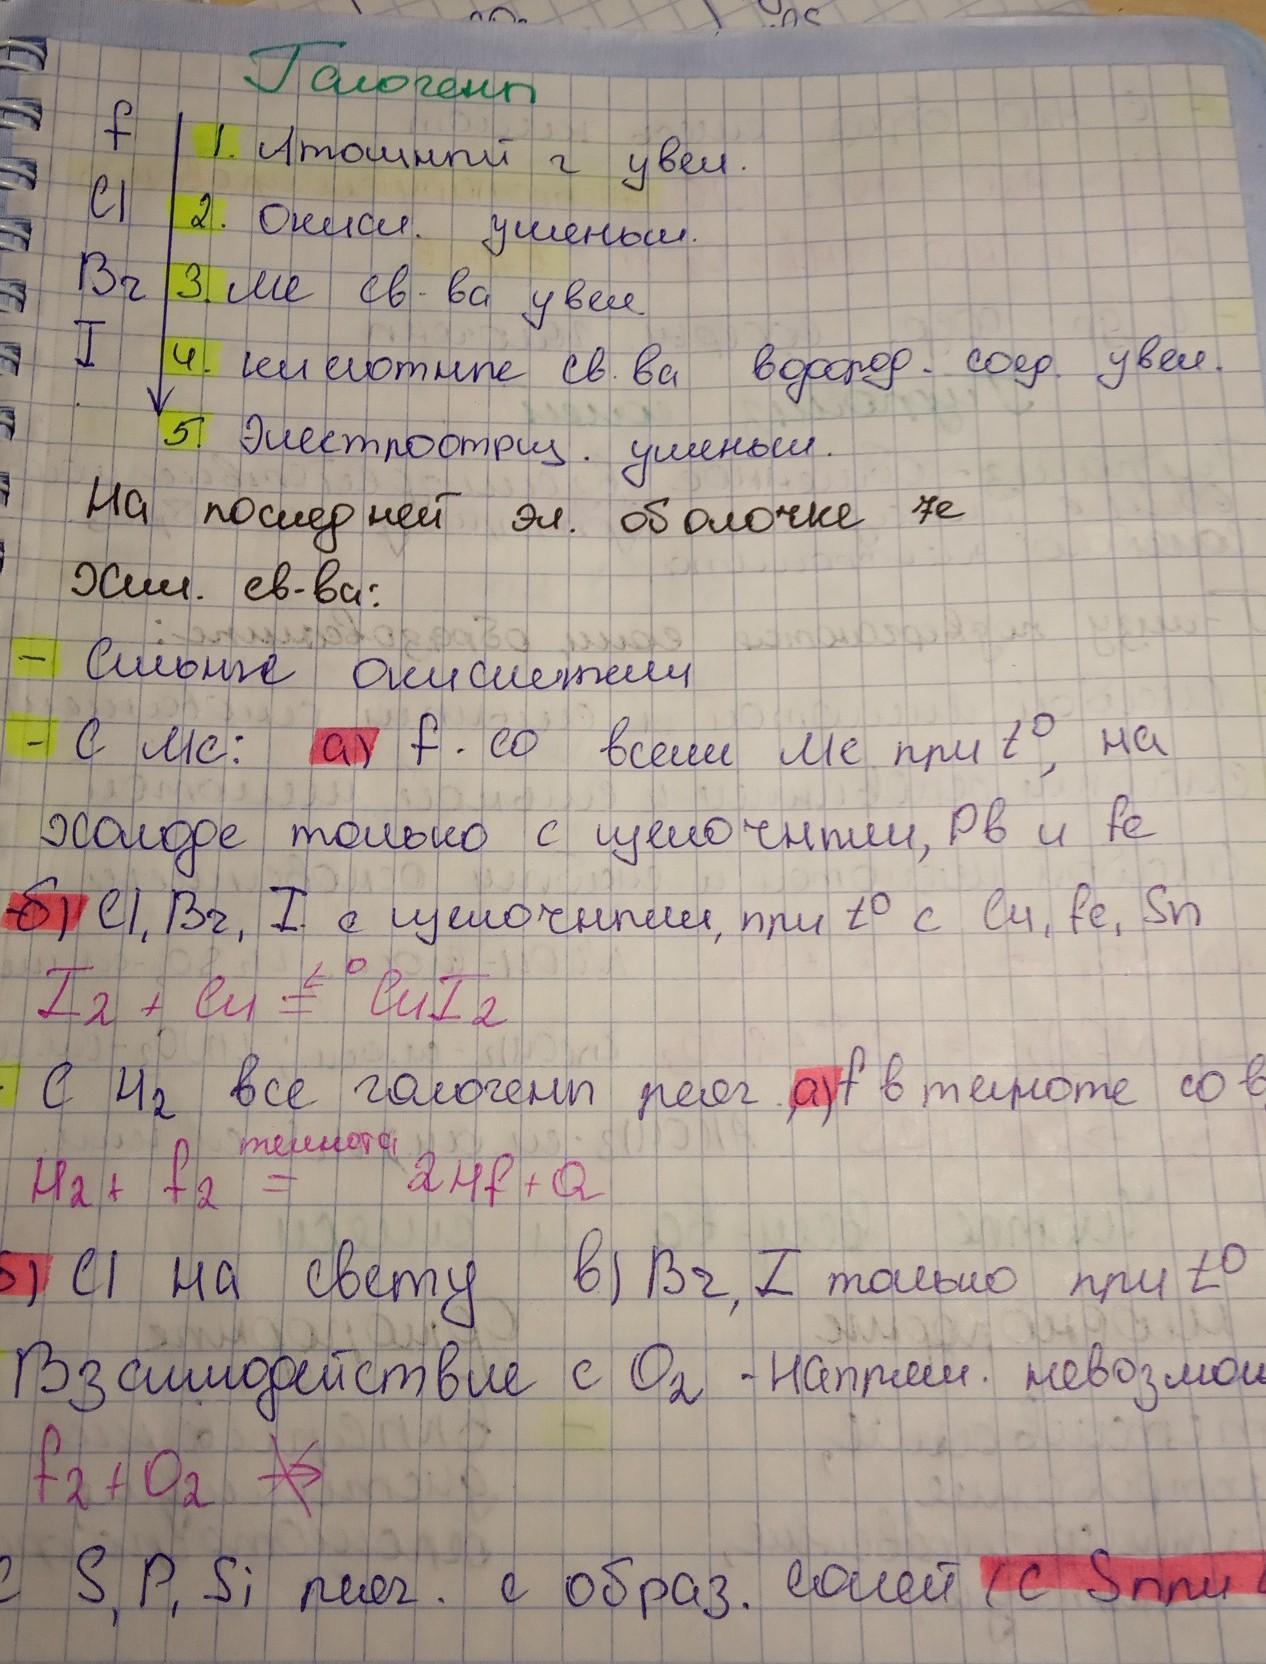 Галогены
F
1. Атомный r увел.
Cl
2. Окисл. уменьш.
Br
3. Ме св-ва увел.
I
4. кислотные св.ва водород. соед. увел.
5. Электроотриц. уменьш.
На последней эл. оболочке 7e
Хим. св-ва:
- Сильные окислители
- С Ме: а) F - со всеми Ме при t°, на
холоде только с щелочными, Pb и Fe
б) Cl, Br, I с щелочными, при t° с Cu, Fe, Sn
I2 + Cu =t° CuI2
- С H2 все галогены реаг. а) F в темноте со в
H2 + F2 =темнота 2HF + Q
б) Cl на свету в) Br, I только при t°
Взаимодействие с O2 - напрям. невозмож
F2 + O2 ↛
с S, P, Si реаг. с образ. солей (с S при